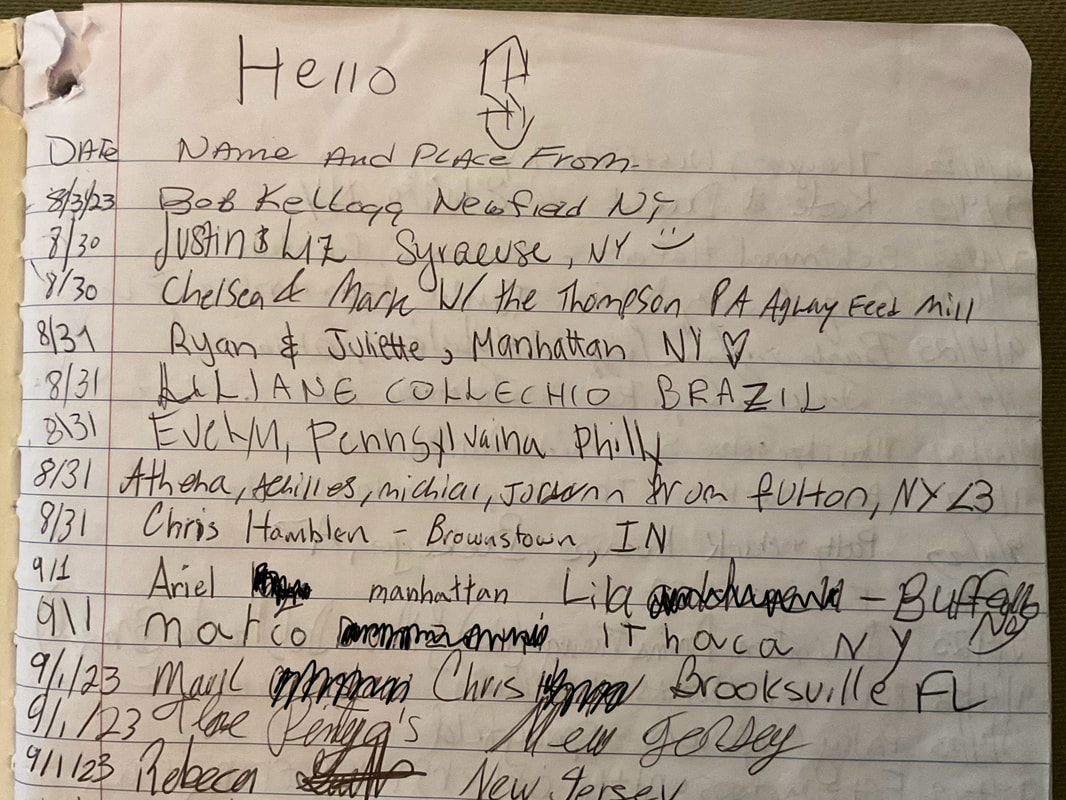 Hello
DATE NAME AND PLACE FROM
8/3/23 Bob Kellogg Newfied NY
8/30 Justin & LIZ Syracuse, NY
8/30 Chelsea & Mark W/ the Thompson PA Agway Feed Mill
8/31 Ryan & Juliette, Manhattan NY ♡
8/31 LILIANE COLLECHIO BRAZIL
8\31 Evelyn, Pennsylvaina Philly
8/31 Athena, Achilles, from fulton, NY <3
8/31 Chris Hamblen - Brownstown, IN
9/1 Ariel manhattan Lila - Buffalo NY
9\1 Marco IThaca NY
9/1/23 Chris Brooksville FL
9/1/23 The New Jersey
9/1/23 Rebeca New Jersey